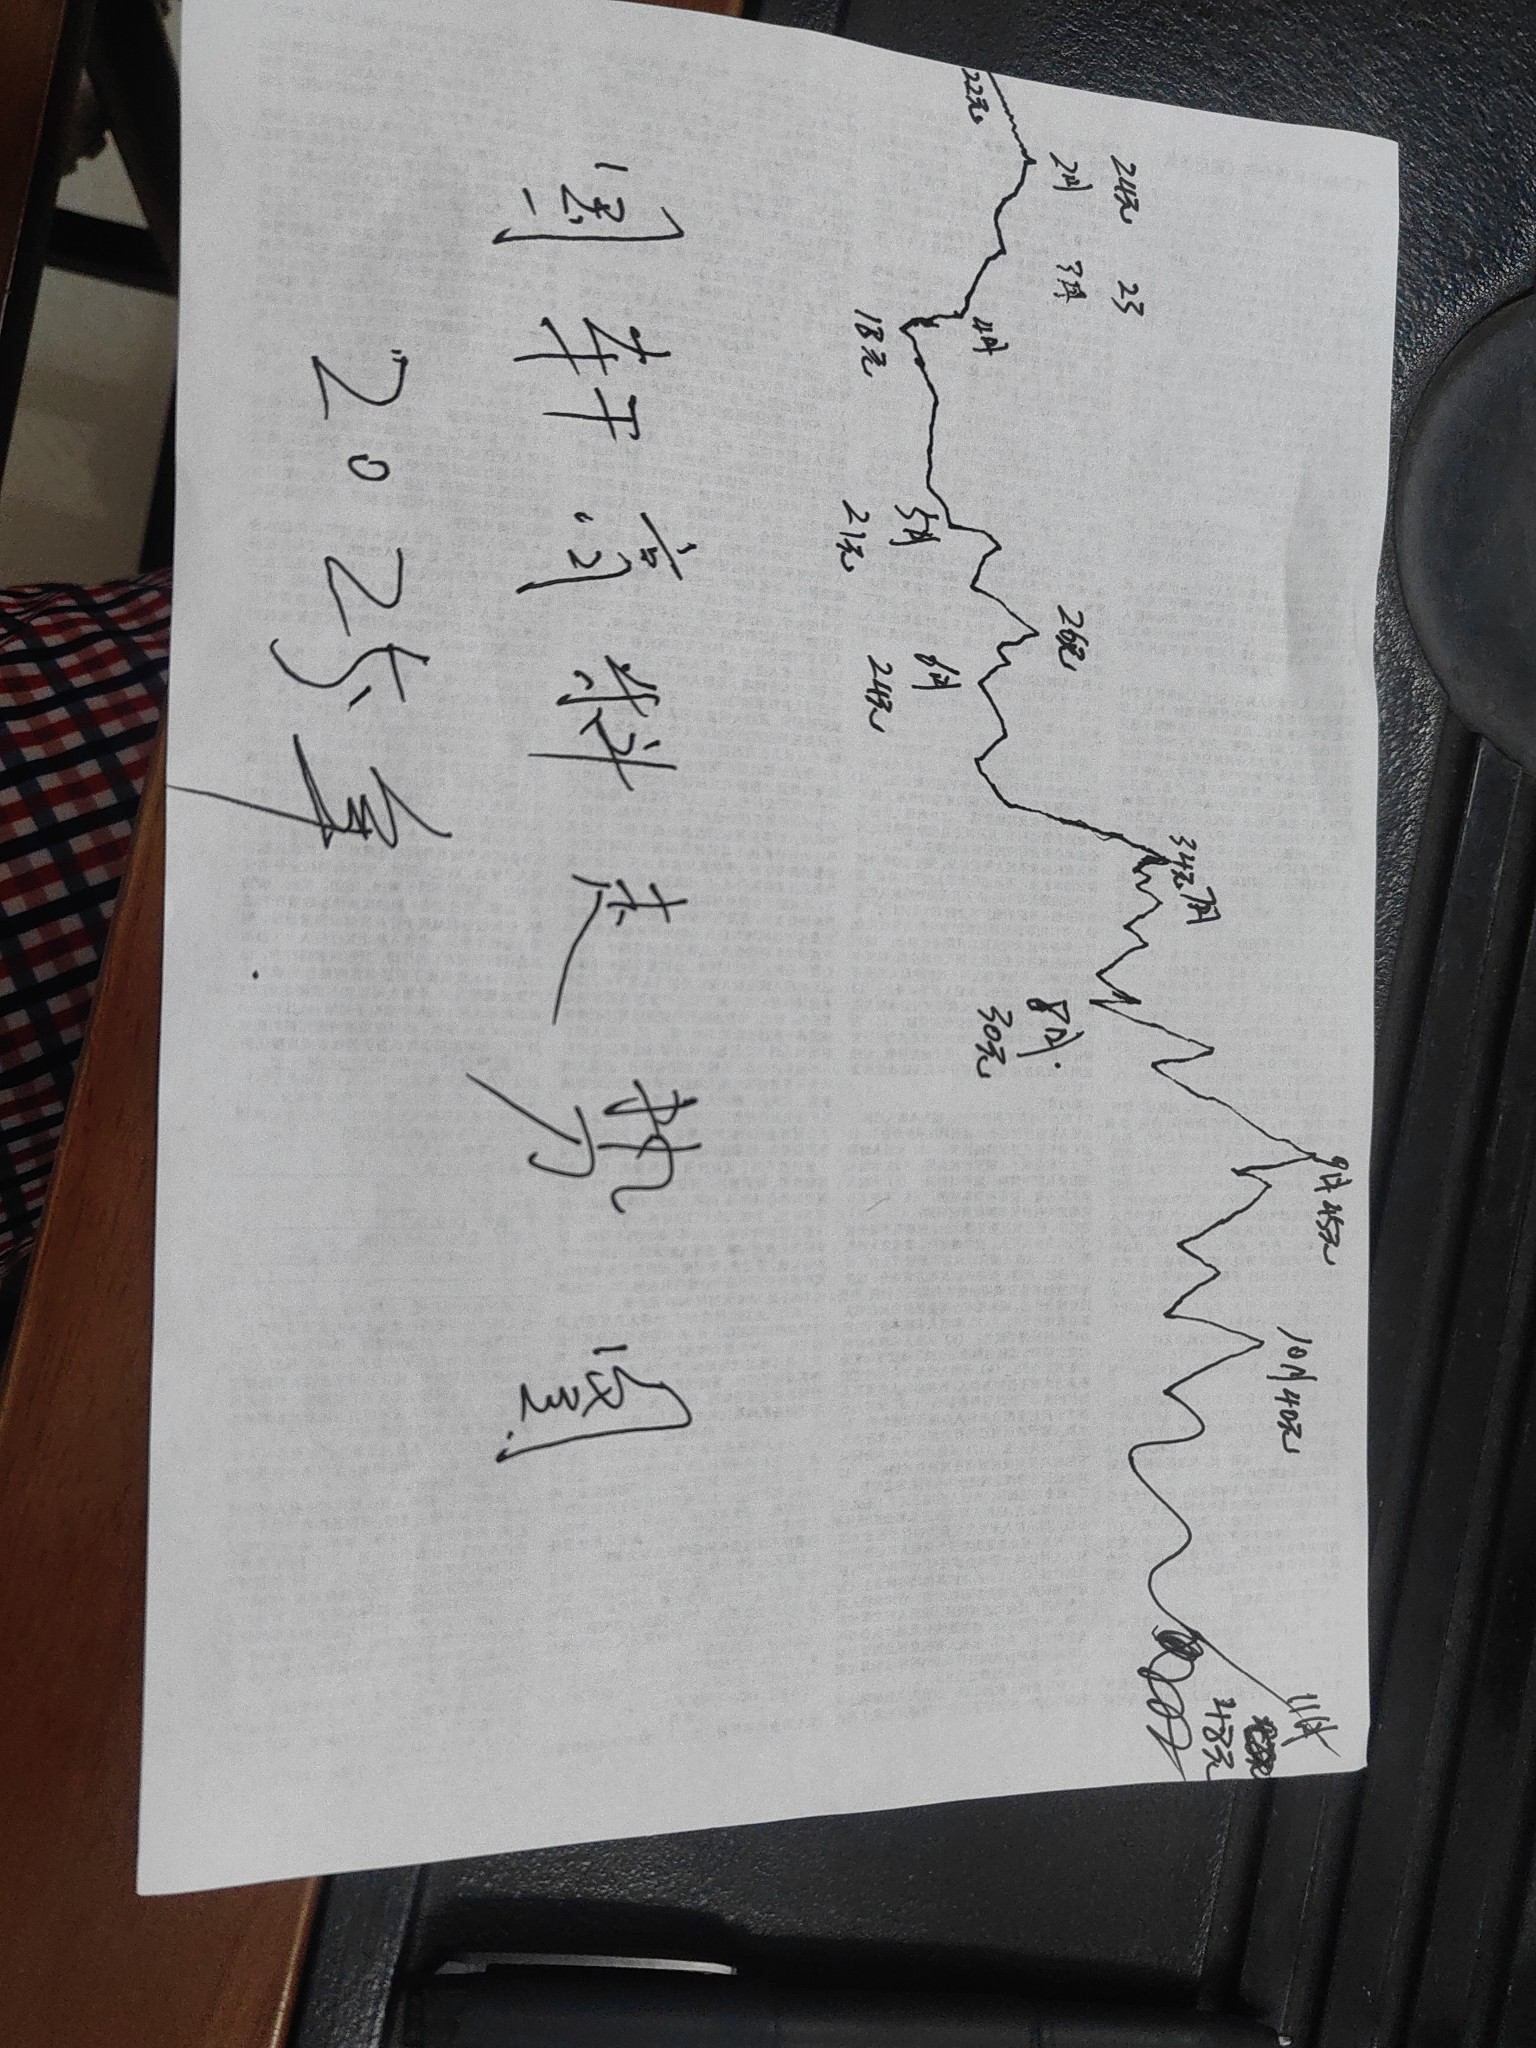 24元 23
2月 3月
22元
4月
18元
26元
5月
21元
6月
24元
34元 7月
8月.
30元
9月 45元
10月 40元
11月
48元
国轩高科走势图
2025年